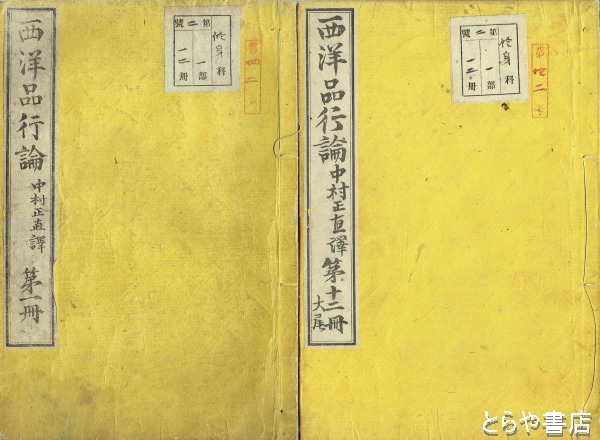 西洋品行論 中村正直譯 第一冊
修身科
第二號
一部
一二冊
第四二号
西洋品行論 中村正直譯 第十二冊
大尾
修身科
第二號
一部
一二冊
第四二号
とらや書店